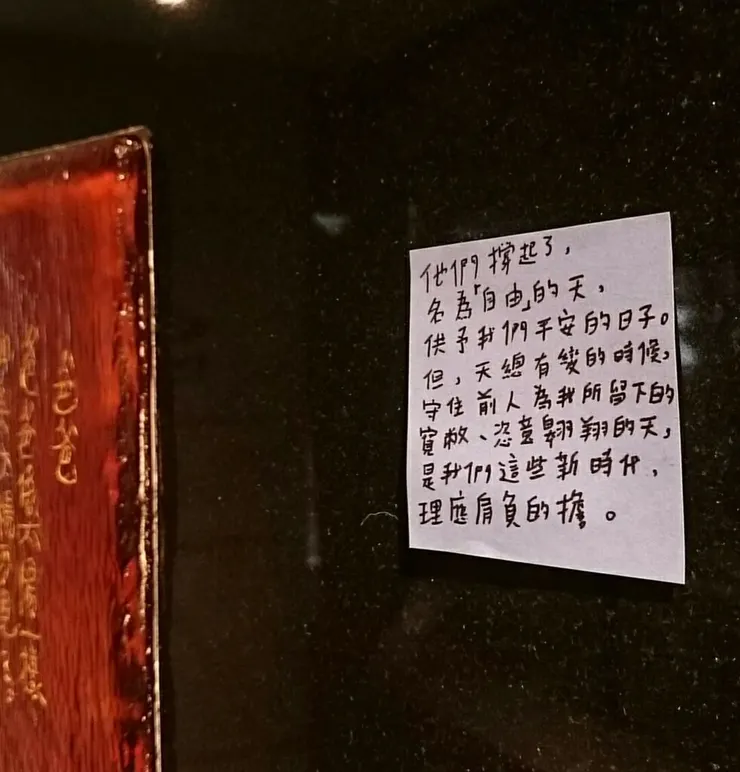 他們撐起了，
名為「自由」的天，
供予我們平安的日子。
但，天總有變的時候，
守住前人為我所留下的
寬敞、恣意翱翔的天，
是我們這些新時代，
理應肩負的擔。
爸爸
爸爸 太陽一樣